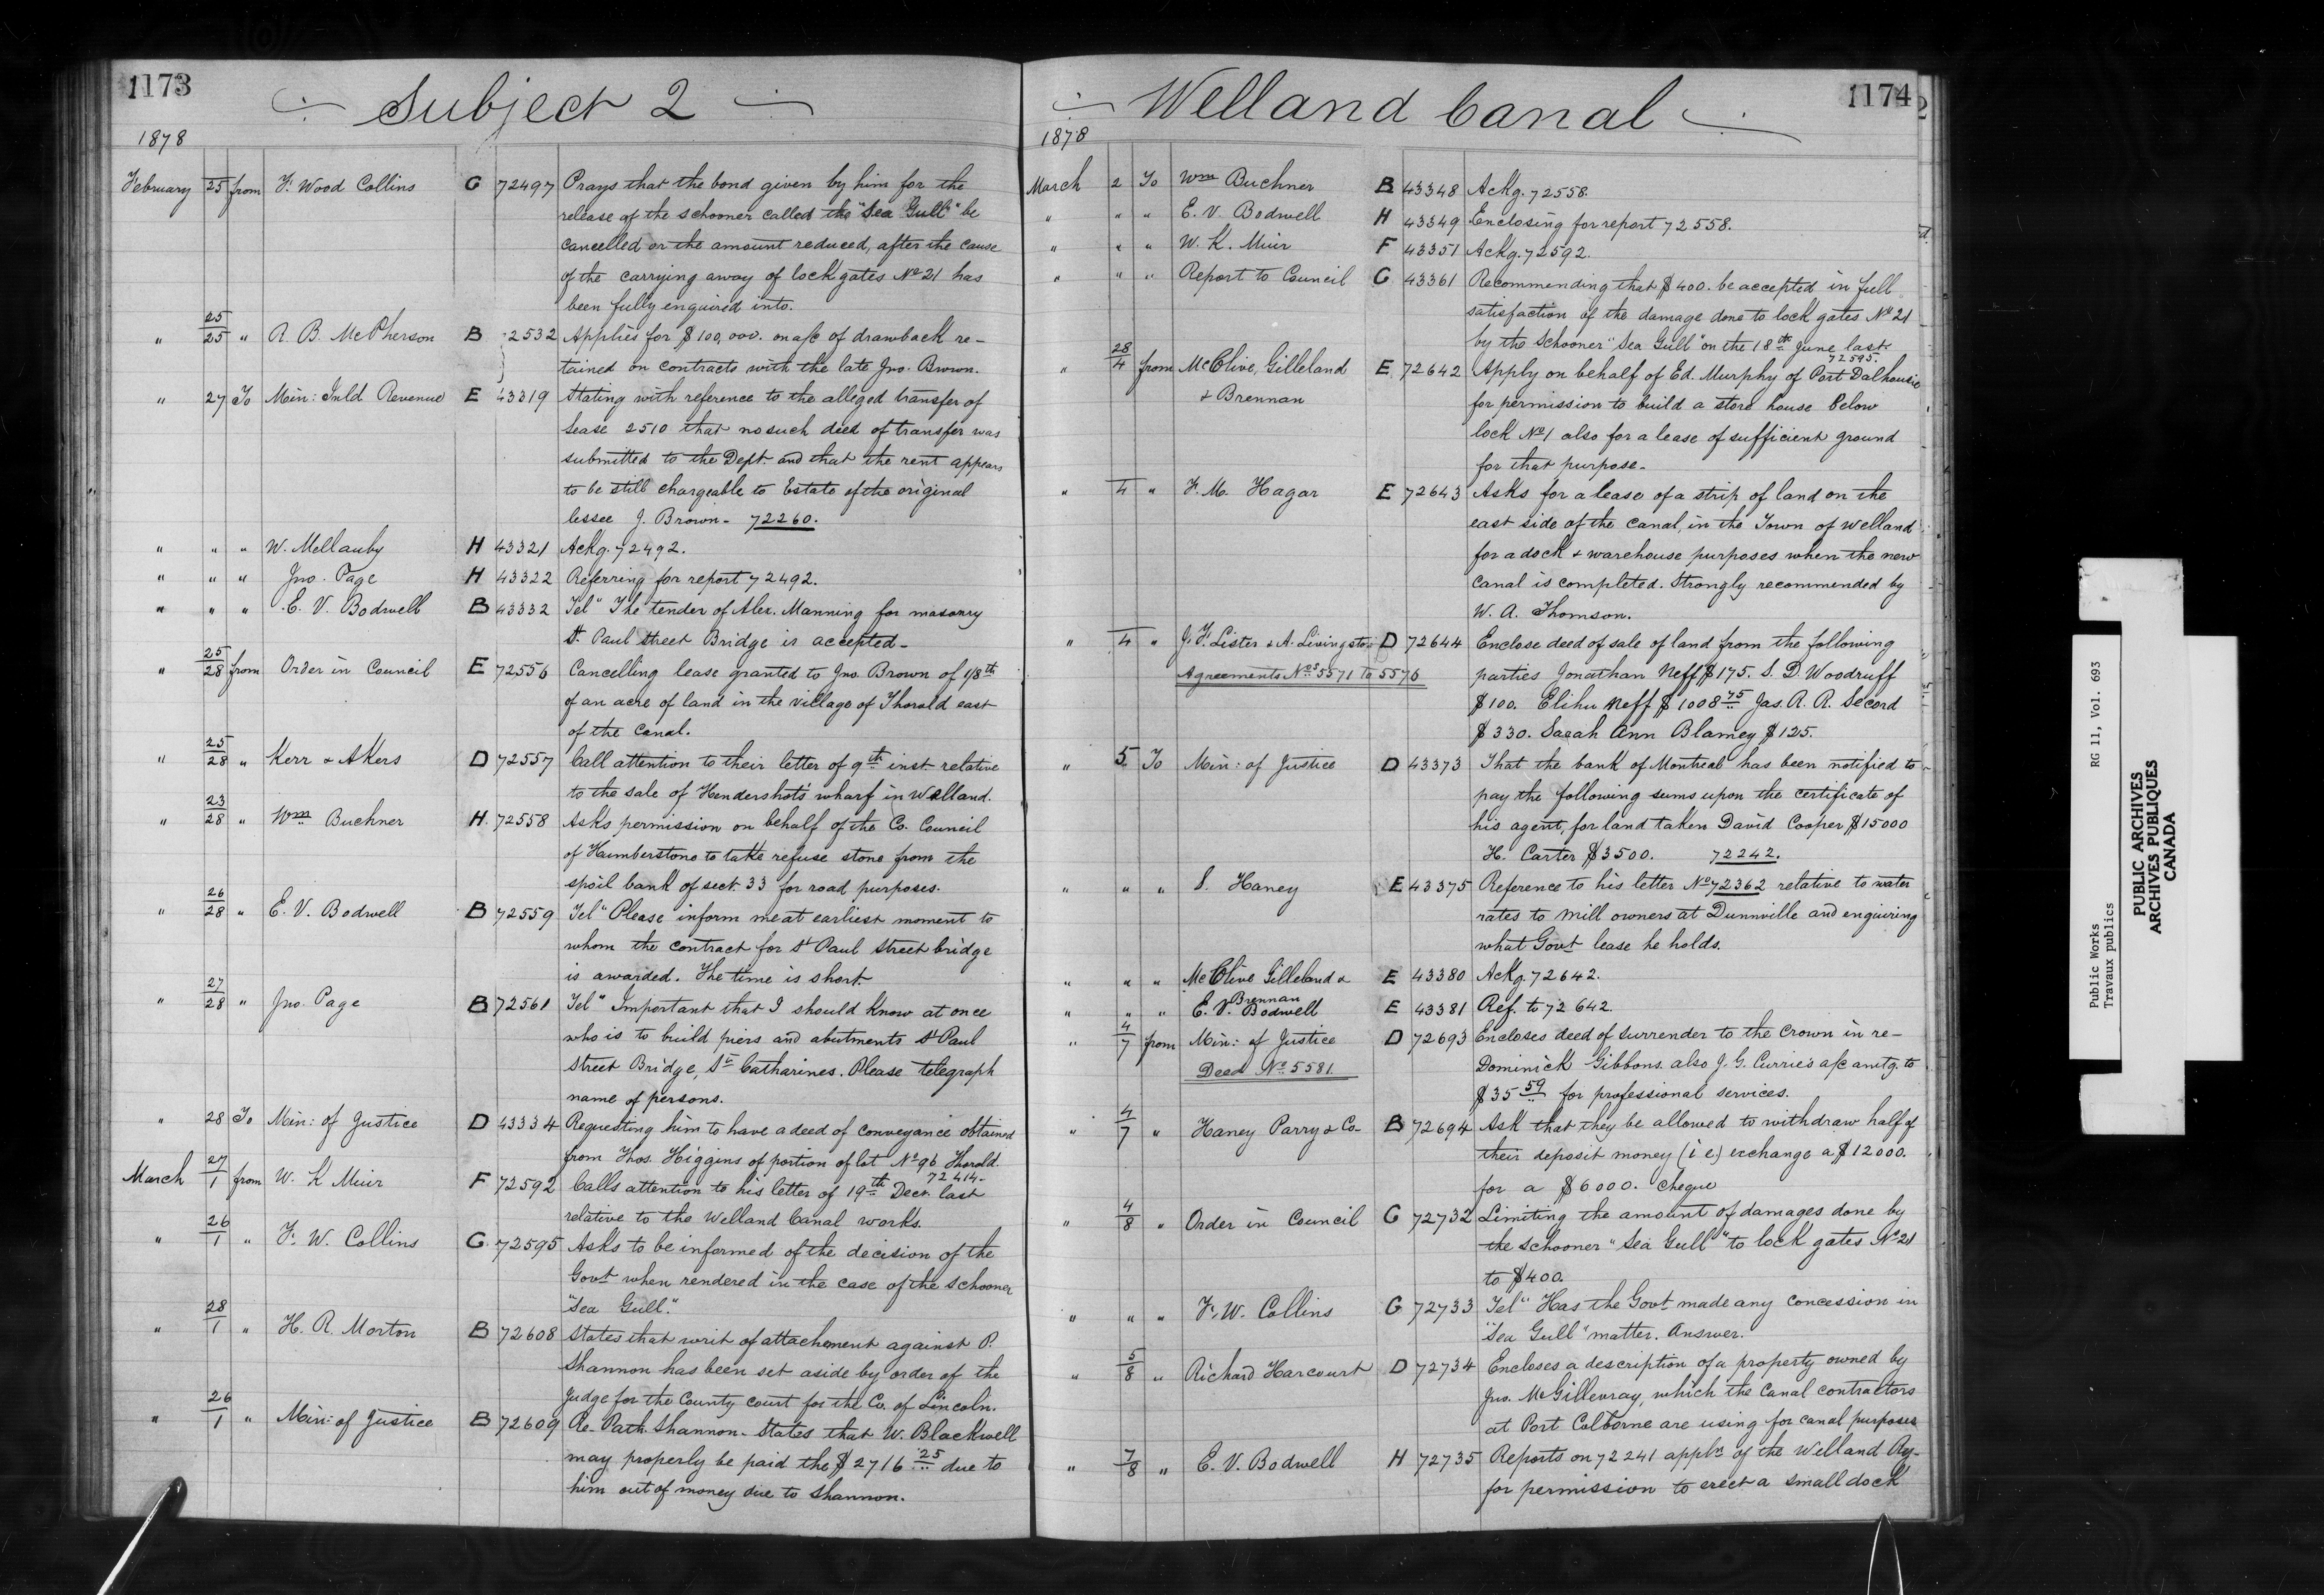 1173
Subject 2
1878
February 25 from F. Wood Collins G 72497 Prays that the bond given by him for the
release of the schooner called the "Sea Gull" be
cancelled or the amount reduced, after the cause
of the carrying away of lock gates No 21 has
been fully enquired into.
" 25/25 " A. B. McPherson B 2532 Applies for $100,000. on a/c of drawback re-
tained on contracts with the late Jno. Brown.
" 27 To Min: Inld Revenue E 43319 Stating with reference to the alleged transfer of
lease 2510 that no such deed of transfer was
submitted to the Dept. and that the rent appears
to be still chargeable to Estate of the original
lessee J. Brown - 72260.
" " " W. Mellanby H 43321 Ackg. 72492.
" " " Jno. Page H 43322 Referring for report 72492.
" " " E. V. Bodwell B 43332 Tel" The tender of Alex. Manning for masonry
St. Paul Street Bridge is accepted -
" 25/28 from Order in Council E 72556 Cancelling lease granted to Jno. Brown of 1/8th
of an acre of land in the village of Thorold east
of the Canal.
" 25/28 " Kerr & Akers D 72557 Call attention to their letter of 9th inst. relative
to the sale of Hendershot's wharf in Welland.
" 23/28 " Wm Buchner H. 72558 Asks permission on behalf of the Co. Council
of Humberstone to take refuse stone from the
spoil bank of sect. 33 for road purposes.
" 26/28 " E. V. Bodwell B 72559 Tel" Please inform me at earliest moment to
whom the contract for St Paul Street bridge
is awarded. The time is short.
" 27/28 " Jno. Page B 72561 Tel" Important that I should know at once
who is to build piers and abutments St Paul
Street Bridge, St Catharines. Please telegraph
name of persons.
" 28 To Min: of Justice D 43334 Requesting him to have a deed of conveyance obtained
from Thos. Higgins of portion of lot No 96 Thorold.
72414-
March 27/1 from W. K Muir F 72592 Calls attention to his letter of 19th Decr. last
relative to the Welland Canal works.
" 26/1 " F. W. Collins G. 72595 Asks to be informed of the decision of the
Govt when rendered in the case of the schooner
"Sea Gull."
" 28/1 " H. R. Morton B 72608 States that writ of attachement against P.
Shannon has been set aside by order of the
Judge for the County court for the Co. of Lincoln.
" 26/1 " Min: of Justice B 72609 Re- Patk. Shannon - States that W. Blackwell
may properly be paid the $2716 25 due to
him out of money due to Shannon.
1174
Welland Canal
1878
March 2 To Wm Buchner B 43348 Ackg. 72558.
" " " E. V. Bodwell H 43349 Enclosing for report 72558.
" " " W. K. Muir F 43351 Ackg. 72592.
" " " Report to Council G 43361 Recommending that $400. be accepted in full
satisfaction of the damage done to lock gates No 21
by the schooner "Sea Gull" on the 18th June last
72595.
" 28/4 from McClive, Gilleland E 72642 Apply on behalf of Ed. Murphy of Port Dalhousie
& Brennan for permission to build a store house below
lock No 1 also for a lease of sufficient ground
for that purpose -
" 4 " F. M. Hagar E 72643 Asks for a lease of a strip of land on the
east side of the canal, in the Town of Welland
for a dock & warehouse purposes when the new
canal is completed. Strongly recommended by
W. A. Thomson.
" 4 " J. F. Lister & A. Livingston D 72644 Enclose deed of sale of land from the following
Agreements Nos 5571 to 5576 parties Jonathan Neff $175. S. D. Woodruff
$100. Elihu Neff $1008 75 Jas. R. R. Secord
$330. Sarah Ann Blamey $125.
" 5 To Min: of Justice D 43373 That the bank of Montreal has been notified to
pay the following sums upon the certificate of
his agent, for land taken David Cooper $15000
H. Carter $3500. 72242.
" " " S. Haney E 43375 Reference to his letter No 72362 relative to water
rates to mill owners at Dunnville and enquiring
what Govt lease he holds.
" " " McClive Gilleland & E 43380 Ackg. 72642.
Brennan
" " " E. V. Bodwell E 43381 Ref. to 72642.
" 4/7 from Min: of Justice D 72693 Encloses deed of surrender to the Crown in re-
Deed No 5581 Dominick Gibbons. also J. G. Currie's a/c amtg. to
$35 59 for professional services.
" 4/7 " Haney Parry & Co- B 72694 Ask that they be allowed to withdraw half of
their deposit money (i e.) exchange a $12000.
for a $6000. cheque
" 4/8 " Order in Council G 72732 Limiting the amount of damages done by
the schooner "Sea Gull" to lock gates No 21
to $400.
" " " F. W. Collins G 72733 Tel" Has the Govt made any concession in
"Sea Gull" matter. Answer.
" 5/8 " Richard Harcourt D 72734 Encloses a description of a property owned by
Jno. McGillevray, which the canal contractors
at Port Colborne are using for canal purposes
" 7/8 " E. V. Bodwell H 72735 Reports on 72241 appln of the Welland Ry-
for permission to erect a small dock
Public Works RG 11, Vol. 693
Travaux publics
PUBLIC ARCHIVES
ARCHIVES PUBLIQUES
CANADA